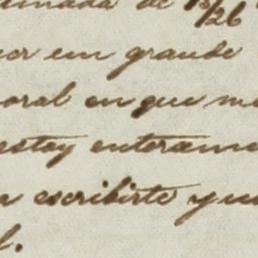 de 13/26
por em grande
oral en que m
estoy enterame
escribirte y qu
l.